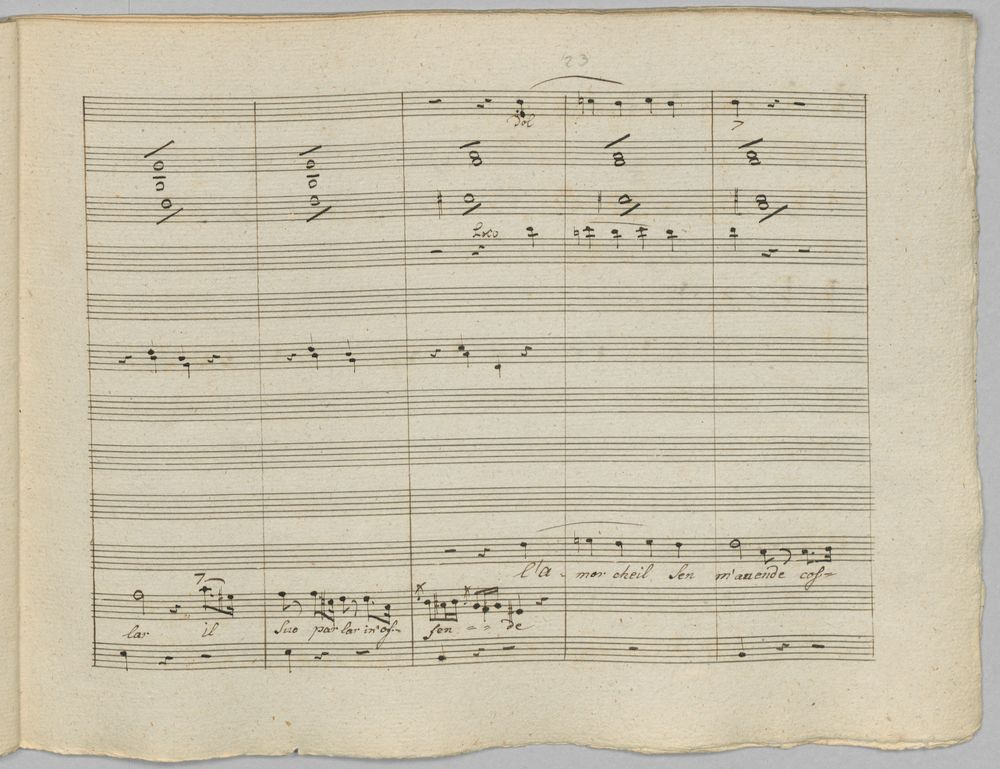 23
Dol
Loco
l'a - mor che il sen m'accende cos=
lar il suo parlar m'of= fen = = de